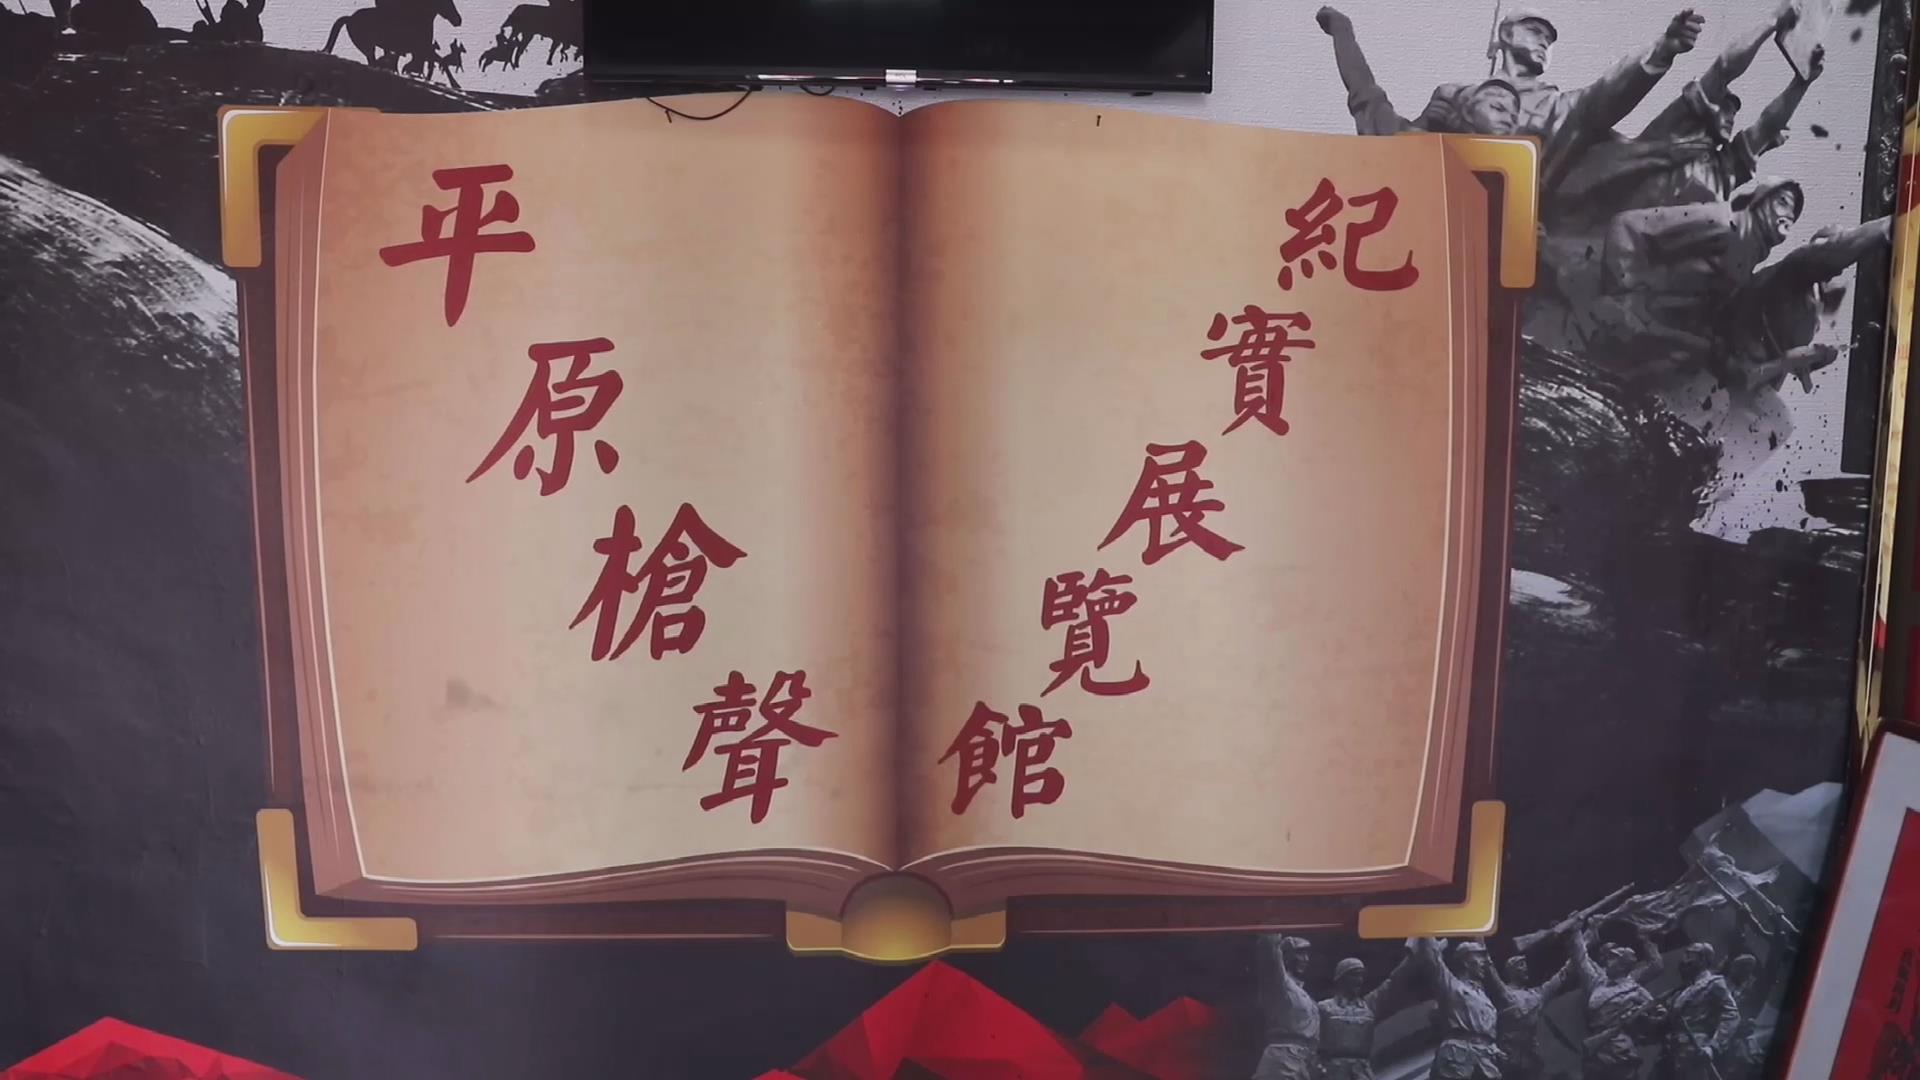 平原槍聲
紀實展覽館